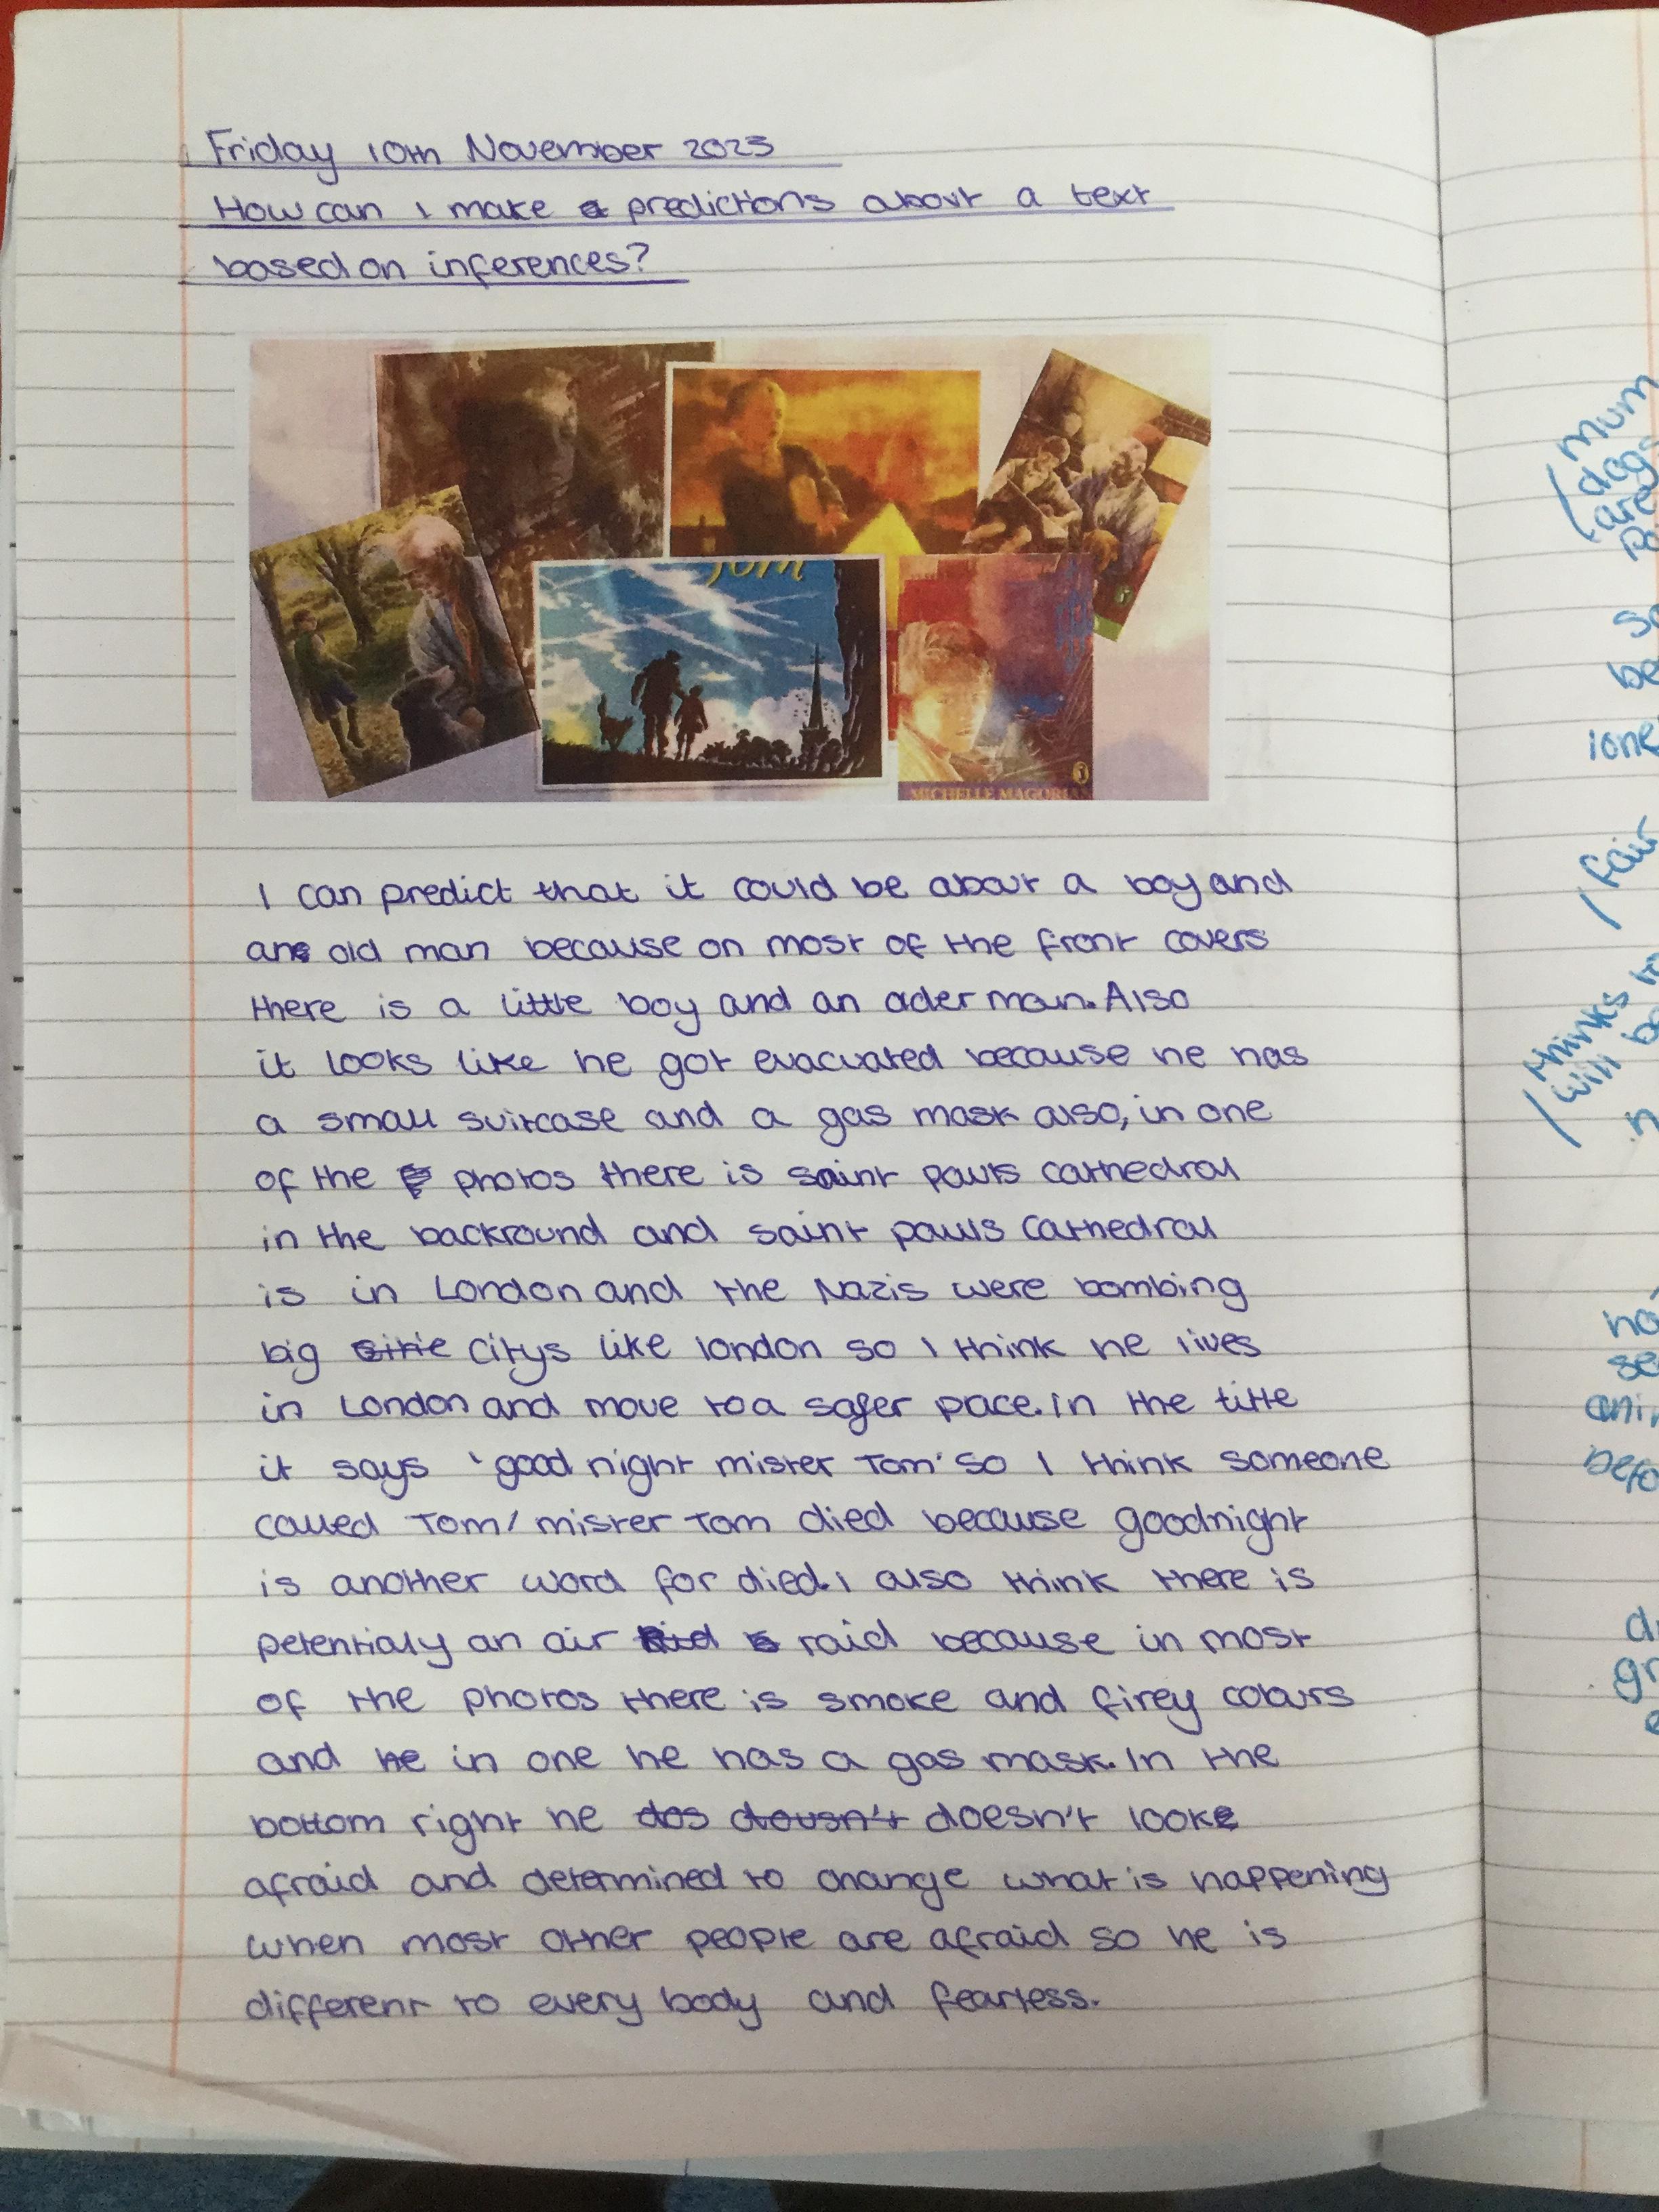 Friday 10th November 2023
How can I make a predictions about a text
based on inferences?
Tom
MICHELLE MAGORIAN
I can predict that it could be about a boy and
an old man because on most of the front covers
there is a little boy and an older man. Also
it looks like he got evacuated because he has
a small suitcase and a gas mask also, in one
of the photos there is saint pauls cathedral
in the backround and saint pauls cathedral
is in London and the Nazis were bombing
big citie citys like london so I think he lives
in London and move to a safer pace. In the title
it says 'good night mister Tom' So I think someone
called Tom/mister Tom died because goodnight
is another word for died. I also think there is
petentialy an air raid because in most
of the photos there is smoke and firey colours
and he in one he has a gas mask. In the
bottom right he dos dousn't doesn't look
afraid and determined to change what is happening
when most other people are afraid so he is
different to every body and fearless.
Mum
dogs
are
So
be
fair
thinks
will